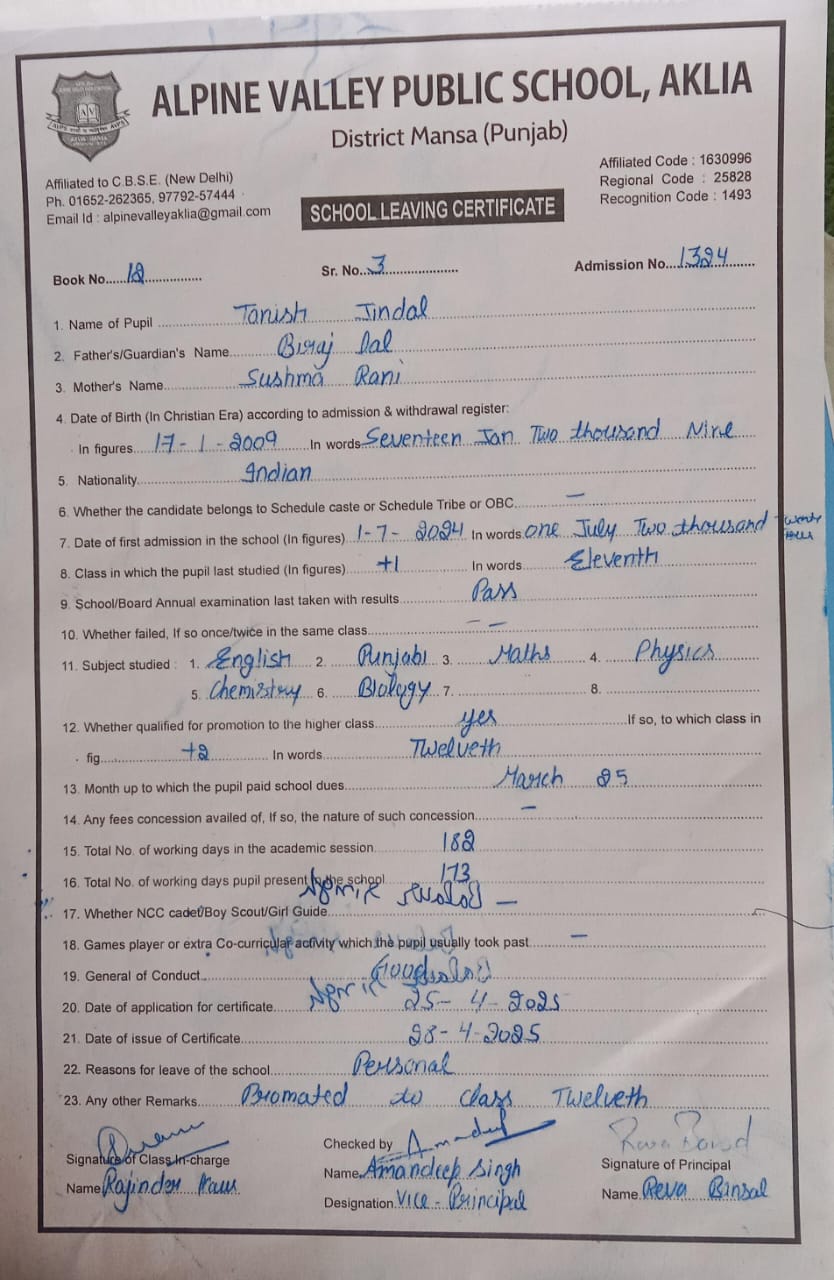 ALPINE VALLEY PUBLIC SCHOOL, AKLIA
District Mansa (Punjab)
Affiliated to C.B.S.E. (New Delhi)
Ph. 01652-262365, 97792-57444
Email Id : alpinevalleyaklia@gmail.com
Affiliated Code : 1630996
Regional Code : 25828
Recognition Code : 1493
SCHOOL LEAVING CERTIFICATE
Book No. 12 Sr. No. 3 Admission No. 1324
1. Name of Pupil Tanish Jindal
2. Father's/Guardian's Name Lal
3. Mother's Name Sushma Rani
4. Date of Birth (In Christian Era) according to admission & withdrawal register:
In figures 17-1-2009 In words Seventeen Jan Two thousand Nine
5. Nationality Indian
6. Whether the candidate belongs to Schedule caste or Schedule Tribe or OBC. —
7. Date of first admission in the school (In figures) 1-7-2024 In words One July Two thousand Twenty
8. Class in which the pupil last studied (In figures) +1 In words Eleventh
9. School/Board Annual examination last taken with results Pass
10. Whether failed, If so once/twice in the same class — —
11. Subject studied : 1. English 2. Punjabi 3. Maths 4. Physics
5. Chemistry 6. Biology 7. 8.
12. Whether qualified for promotion to the higher class yes If so, to which class in
fig. +2 In words Twelveth
13. Month up to which the pupil paid school dues March 25
14. Any fees concession availed of, If so, the nature of such concession —
15. Total No. of working days in the academic session 182
16. Total No. of working days pupil present in the school 173
17. Whether NCC cadet/Boy Scout/Girl Guide —
18. Games player or extra Co-curricular activity which the pupil usually took past —
19. General of Conduct Good
20. Date of application for certificate 25-4-2025
21. Date of issue of Certificate 28-4-2025
22. Reasons for leave of the school Personal
23. Any other Remarks Promated to class Twelveth
Signature of Class In-charge
Name Rajinder Kaur
Checked by Amandeep
Name Amandeep Singh
Designation Vice-Principal
Signature of Principal
Name Reva Binsal